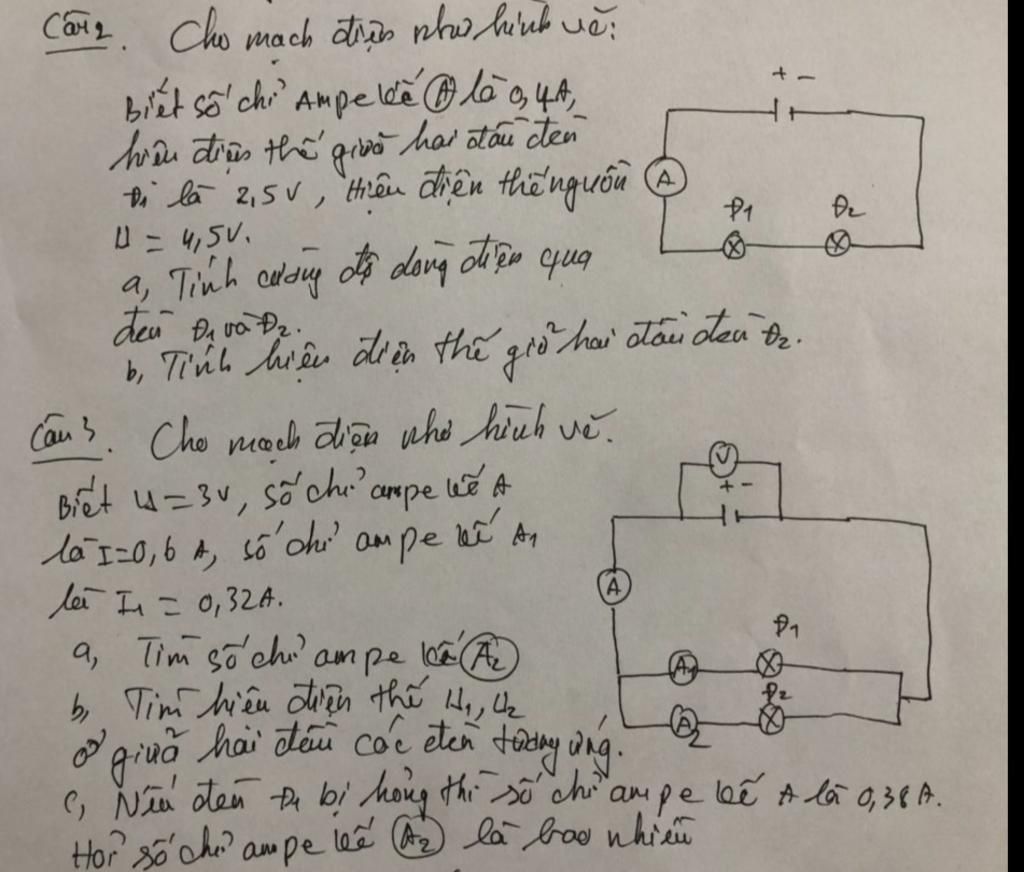 Câu 2. Cho mạch điện như hình vẽ:
+ -
Biết số chỉ Ampe kế (A) là 0,4A,
hiệu điện thế giữa hai đầu đèn
Đ1 là 2,5V, Hiệu điện thế nguồn
A
Đ1 Đ2
U = 4,5V.
a, Tính cường độ dòng điện qua
đèn Đ1 và Đ2.
b, Tính hiệu điện thế giữ hai đầu đèn Đ2.
Câu 3. Cho mạch điện như hình vẽ.
V
+ -
Biết U = 3V, số chỉ ampe kế A
là I=0,6 A, số chỉ ampe kế A1
A
là I1 = 0,32A.
Đ1
a, Tìm số chỉ ampe kế (A2)
A1
Đ2
b, Tìm hiệu điện thế U1, U2
A2
ở giữa hai đầu các đèn tương ứng.
c, Nếu đèn Đ1 bị hỏng thì số chỉ ampe kế A là 0,38A.
Hỏi số chỉ ampe kế (A2) là bao nhiêu